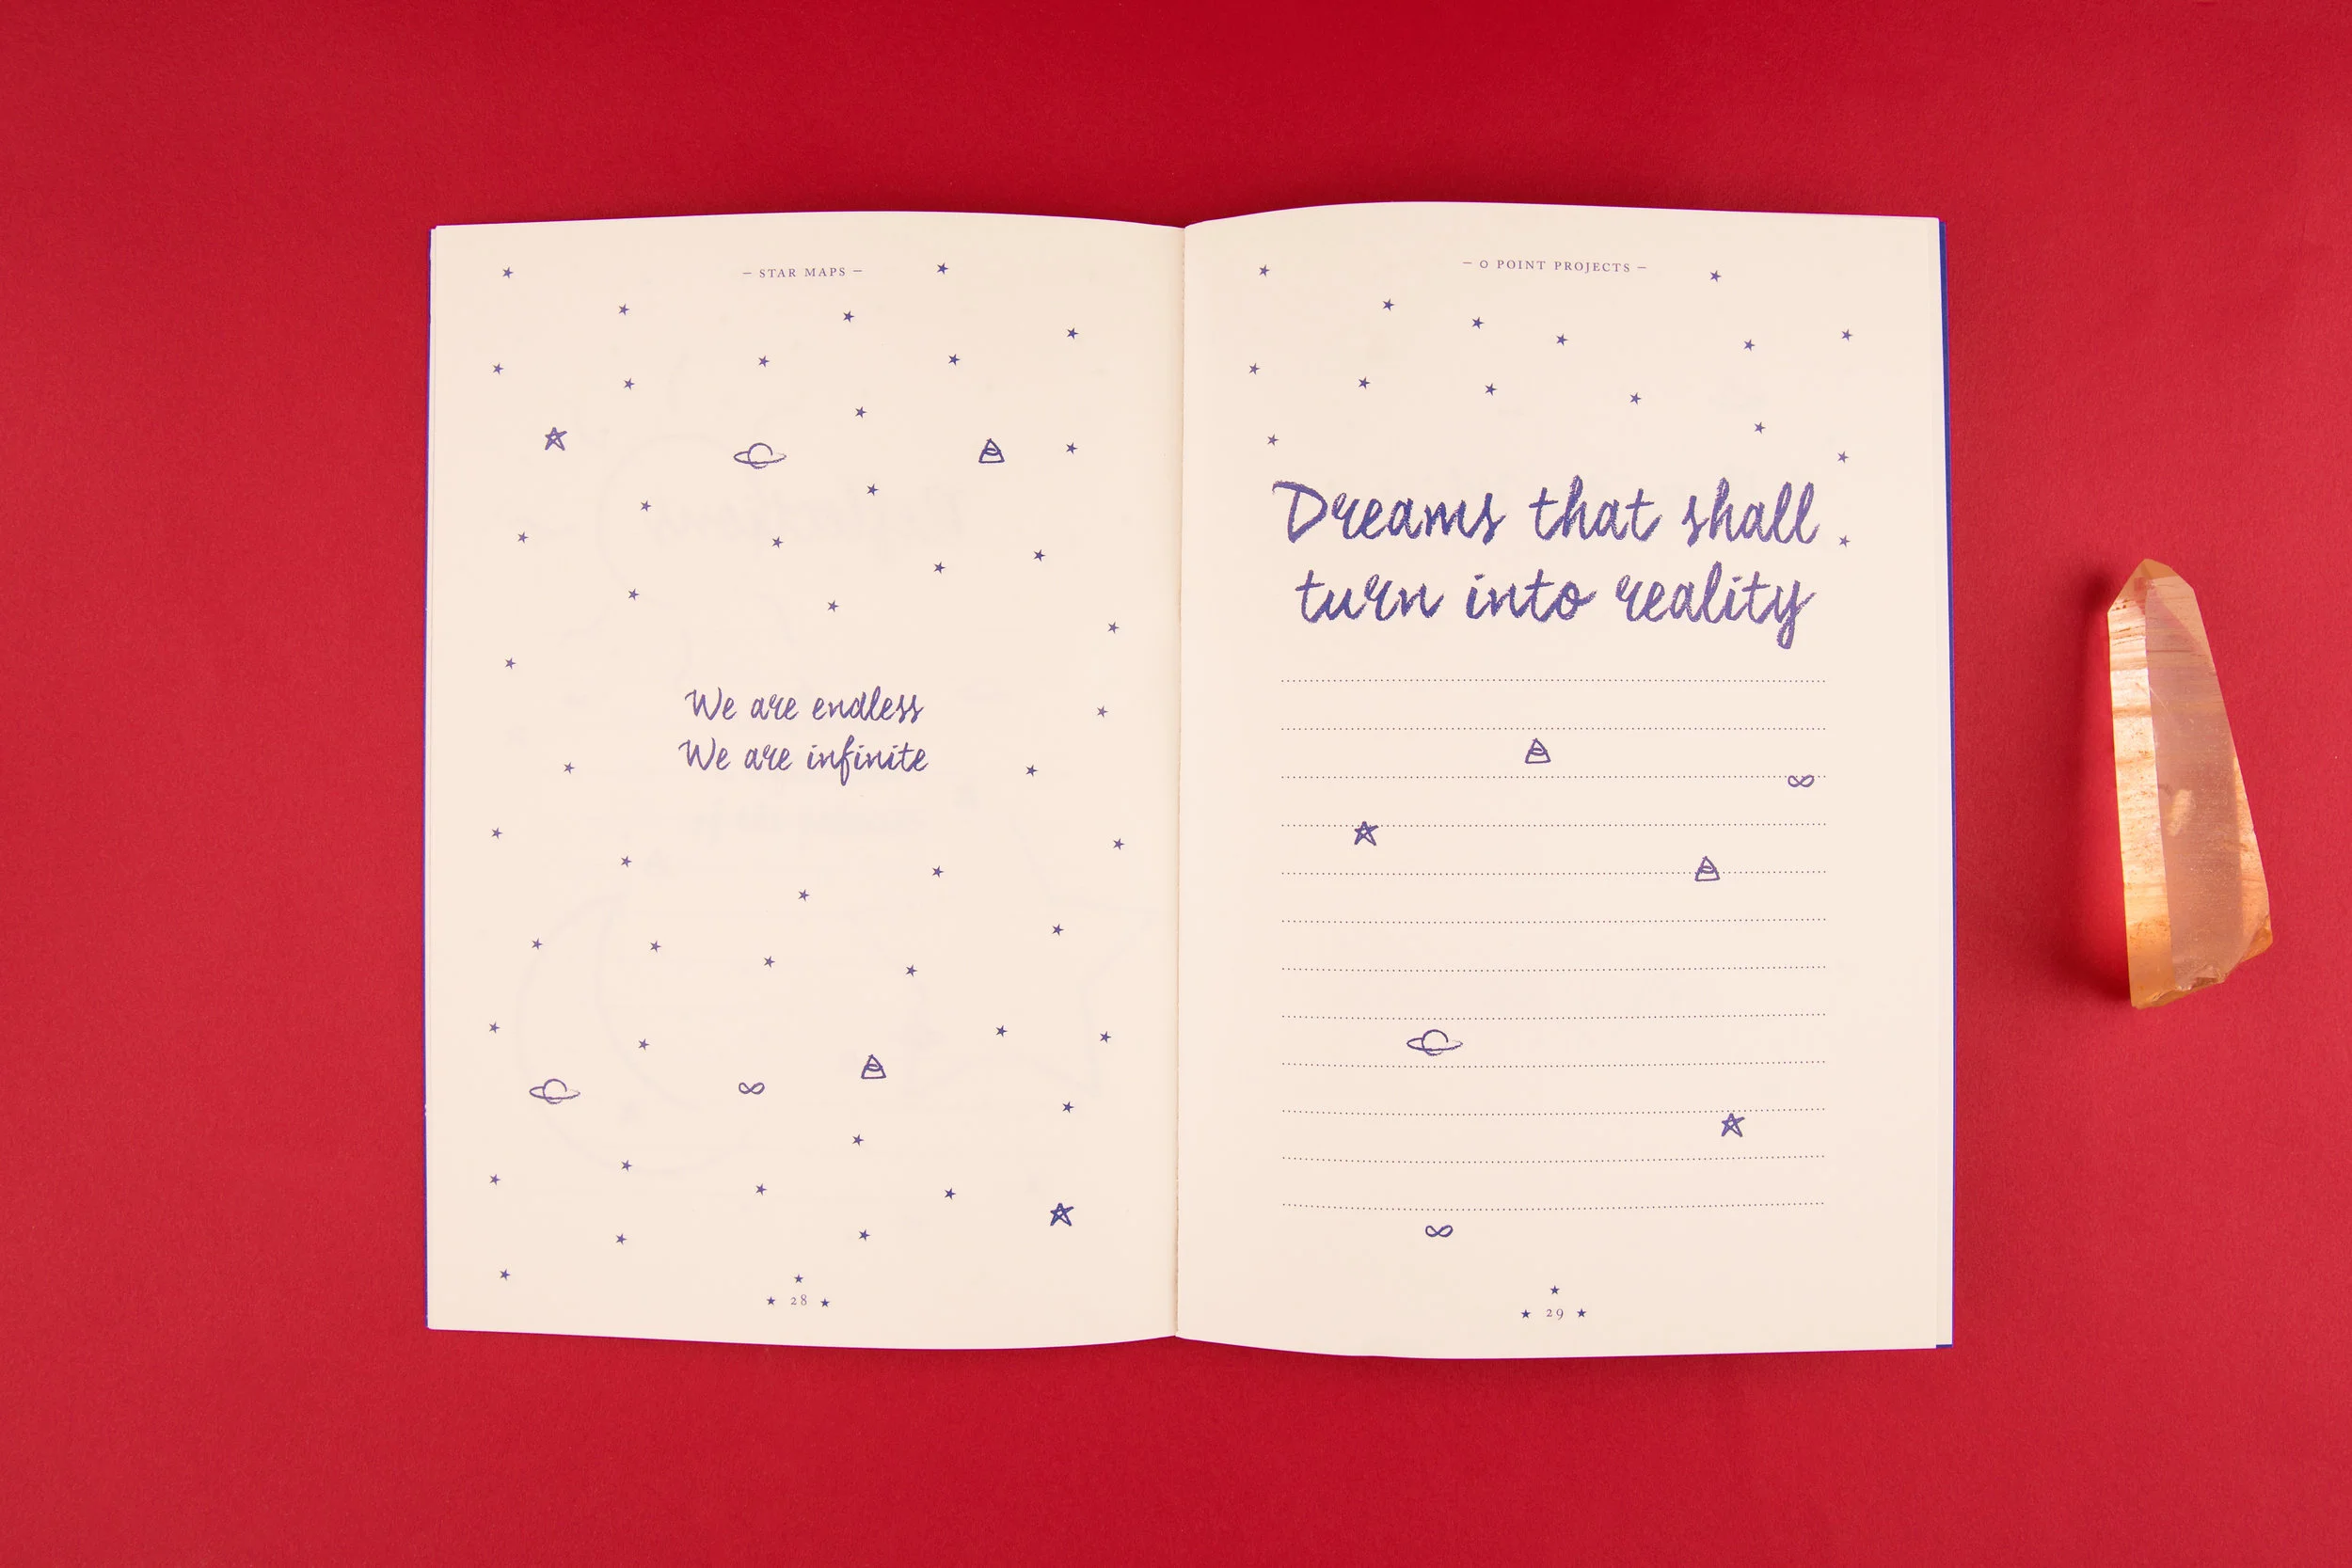 – STAR MAPS –
We are endless
We are infinite
28
– 0 POINT PROJECTS –
Dreams that shall
turn into reality
29